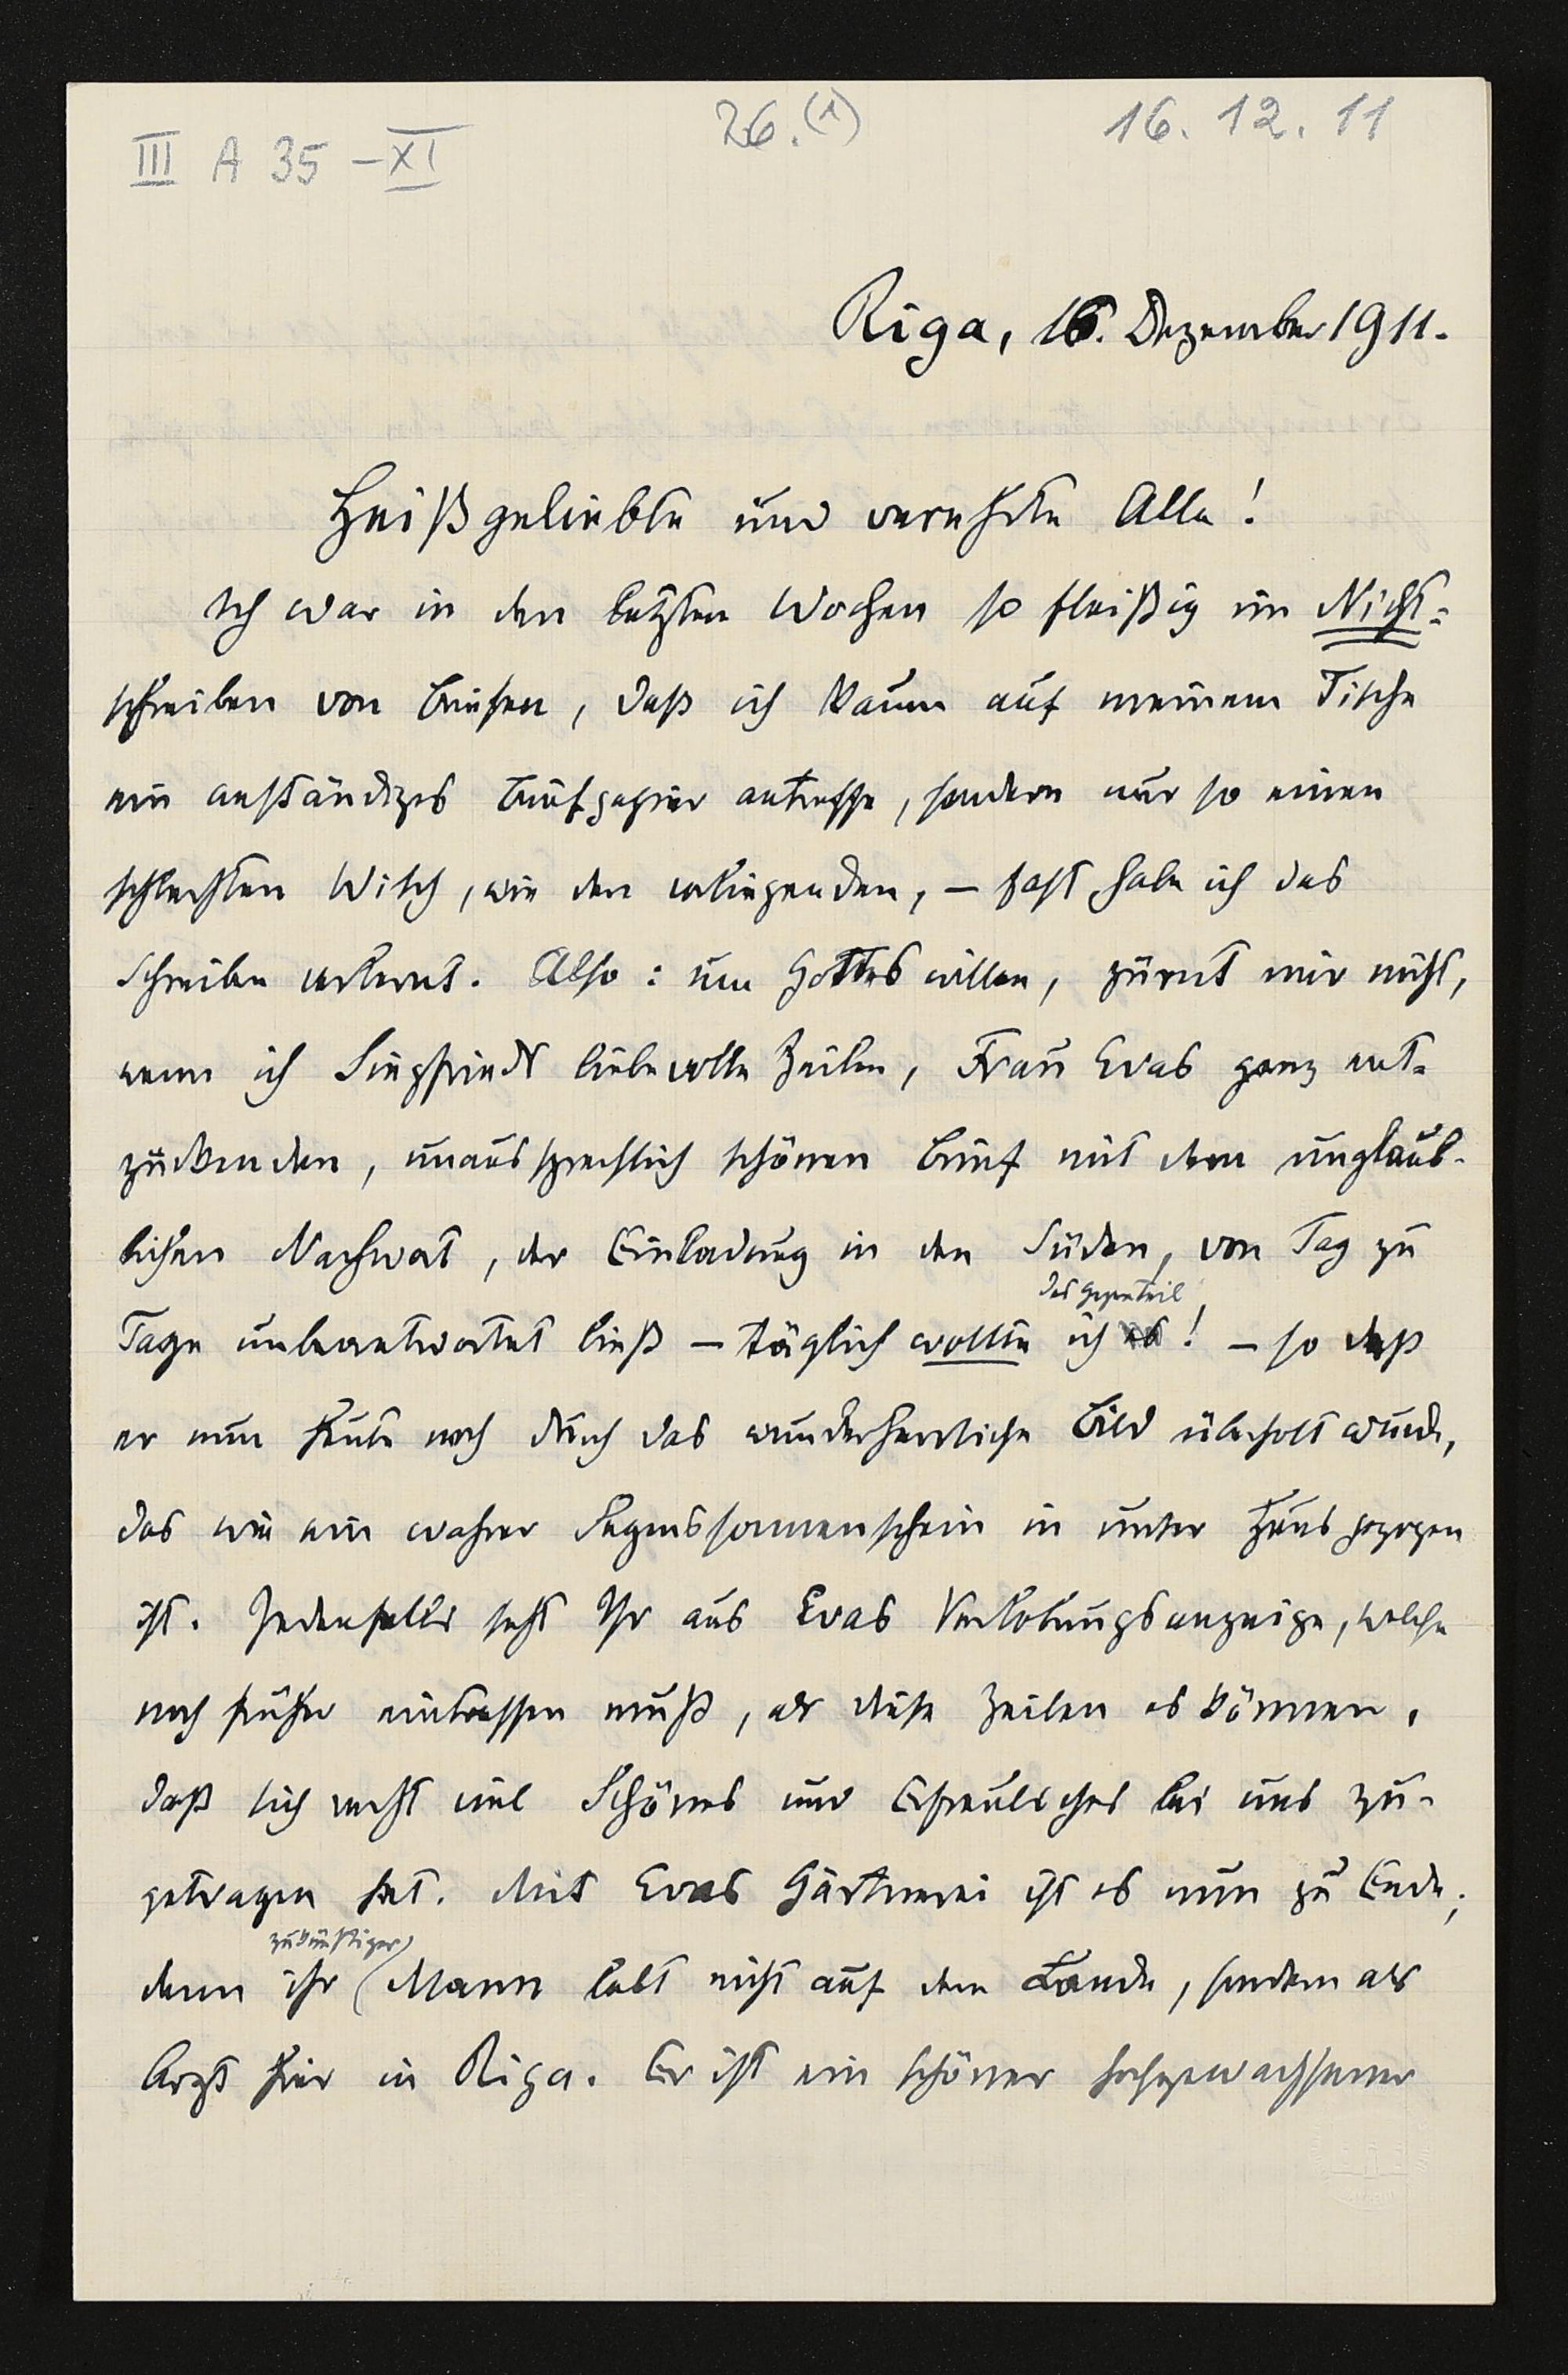 III A 35 – XI
26. (1)
16. 12. 11
Riga, 16. Dezember 1911.
Heißgeliebte und verehrte Alle!
Ich war in den letzten Wochen so fleißig im Nicht-
schreiben von Briefen, daß ich kaum auf meinem Tische
ein anständiges Briefpapier antreffe, sondern nur so einen
schlechten Wisch, wie den vorliegenden, – fast habe ich das
Schreiben verlernt. Also: um Gottes willen, zürnt mir nicht,
wenn ich Siegfrieds liebevolle Zeilen, Frau Evas ganz ent-
zückenden, unaussprechlich schönen Brief mit dem unglaub-
lichen Nachwort, der Einladung in den Süden, von Tag zu
das Gegenteil
Tage unbeantwortet ließ – täglich wollte ich es! – so daß
er nun heute noch durch das wunderherrliche Bild überholt wurde,
das wie ein wahrer Segenssonnenschein in unser Haus gezogen
ist. Jedenfalls seht Ihr aus Evas Verlobungsanzeige, welche
noch früher eintreffen muß, als diese Zeilen es können,
daß sich recht viel Schönes und Erfreuliches bei uns zu-
getragen hat. Mit Evas Gärtnerei ist es nun zu Ende;
zukünftiger
denn ihr Mann lebt nicht auf dem Lande, sondern als
Arzt hier in Riga. Er ist ein schöner hochgewachsener